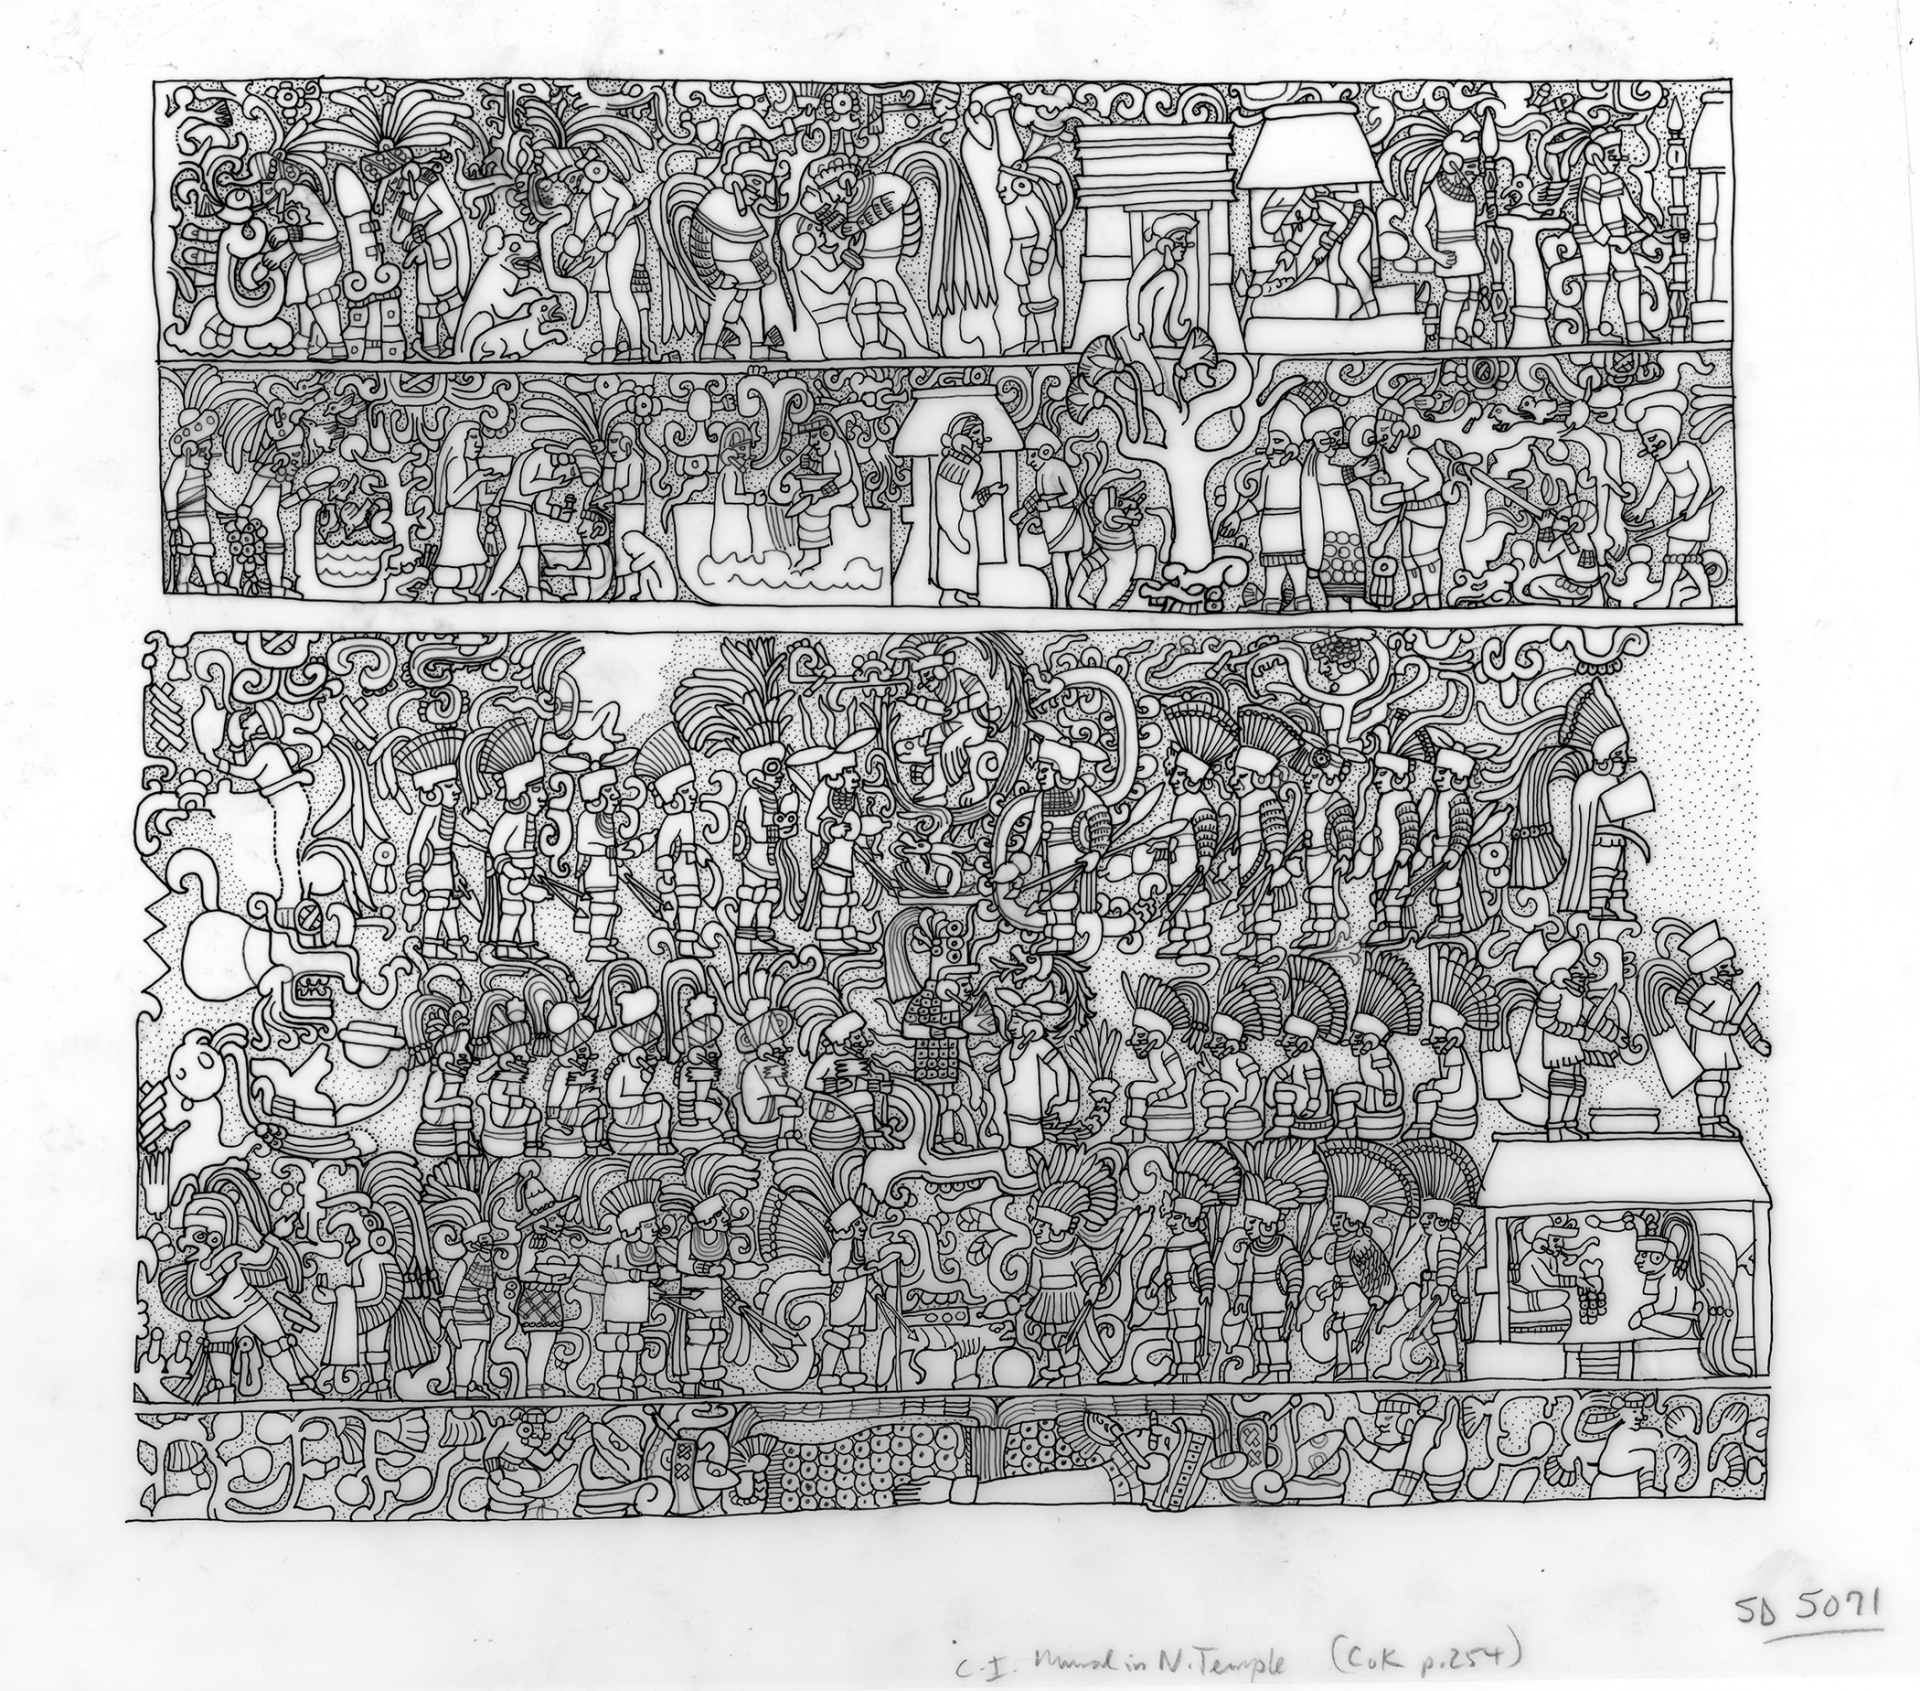 SD 5071
C.I. Mural in N. Temple (CoK p.254)